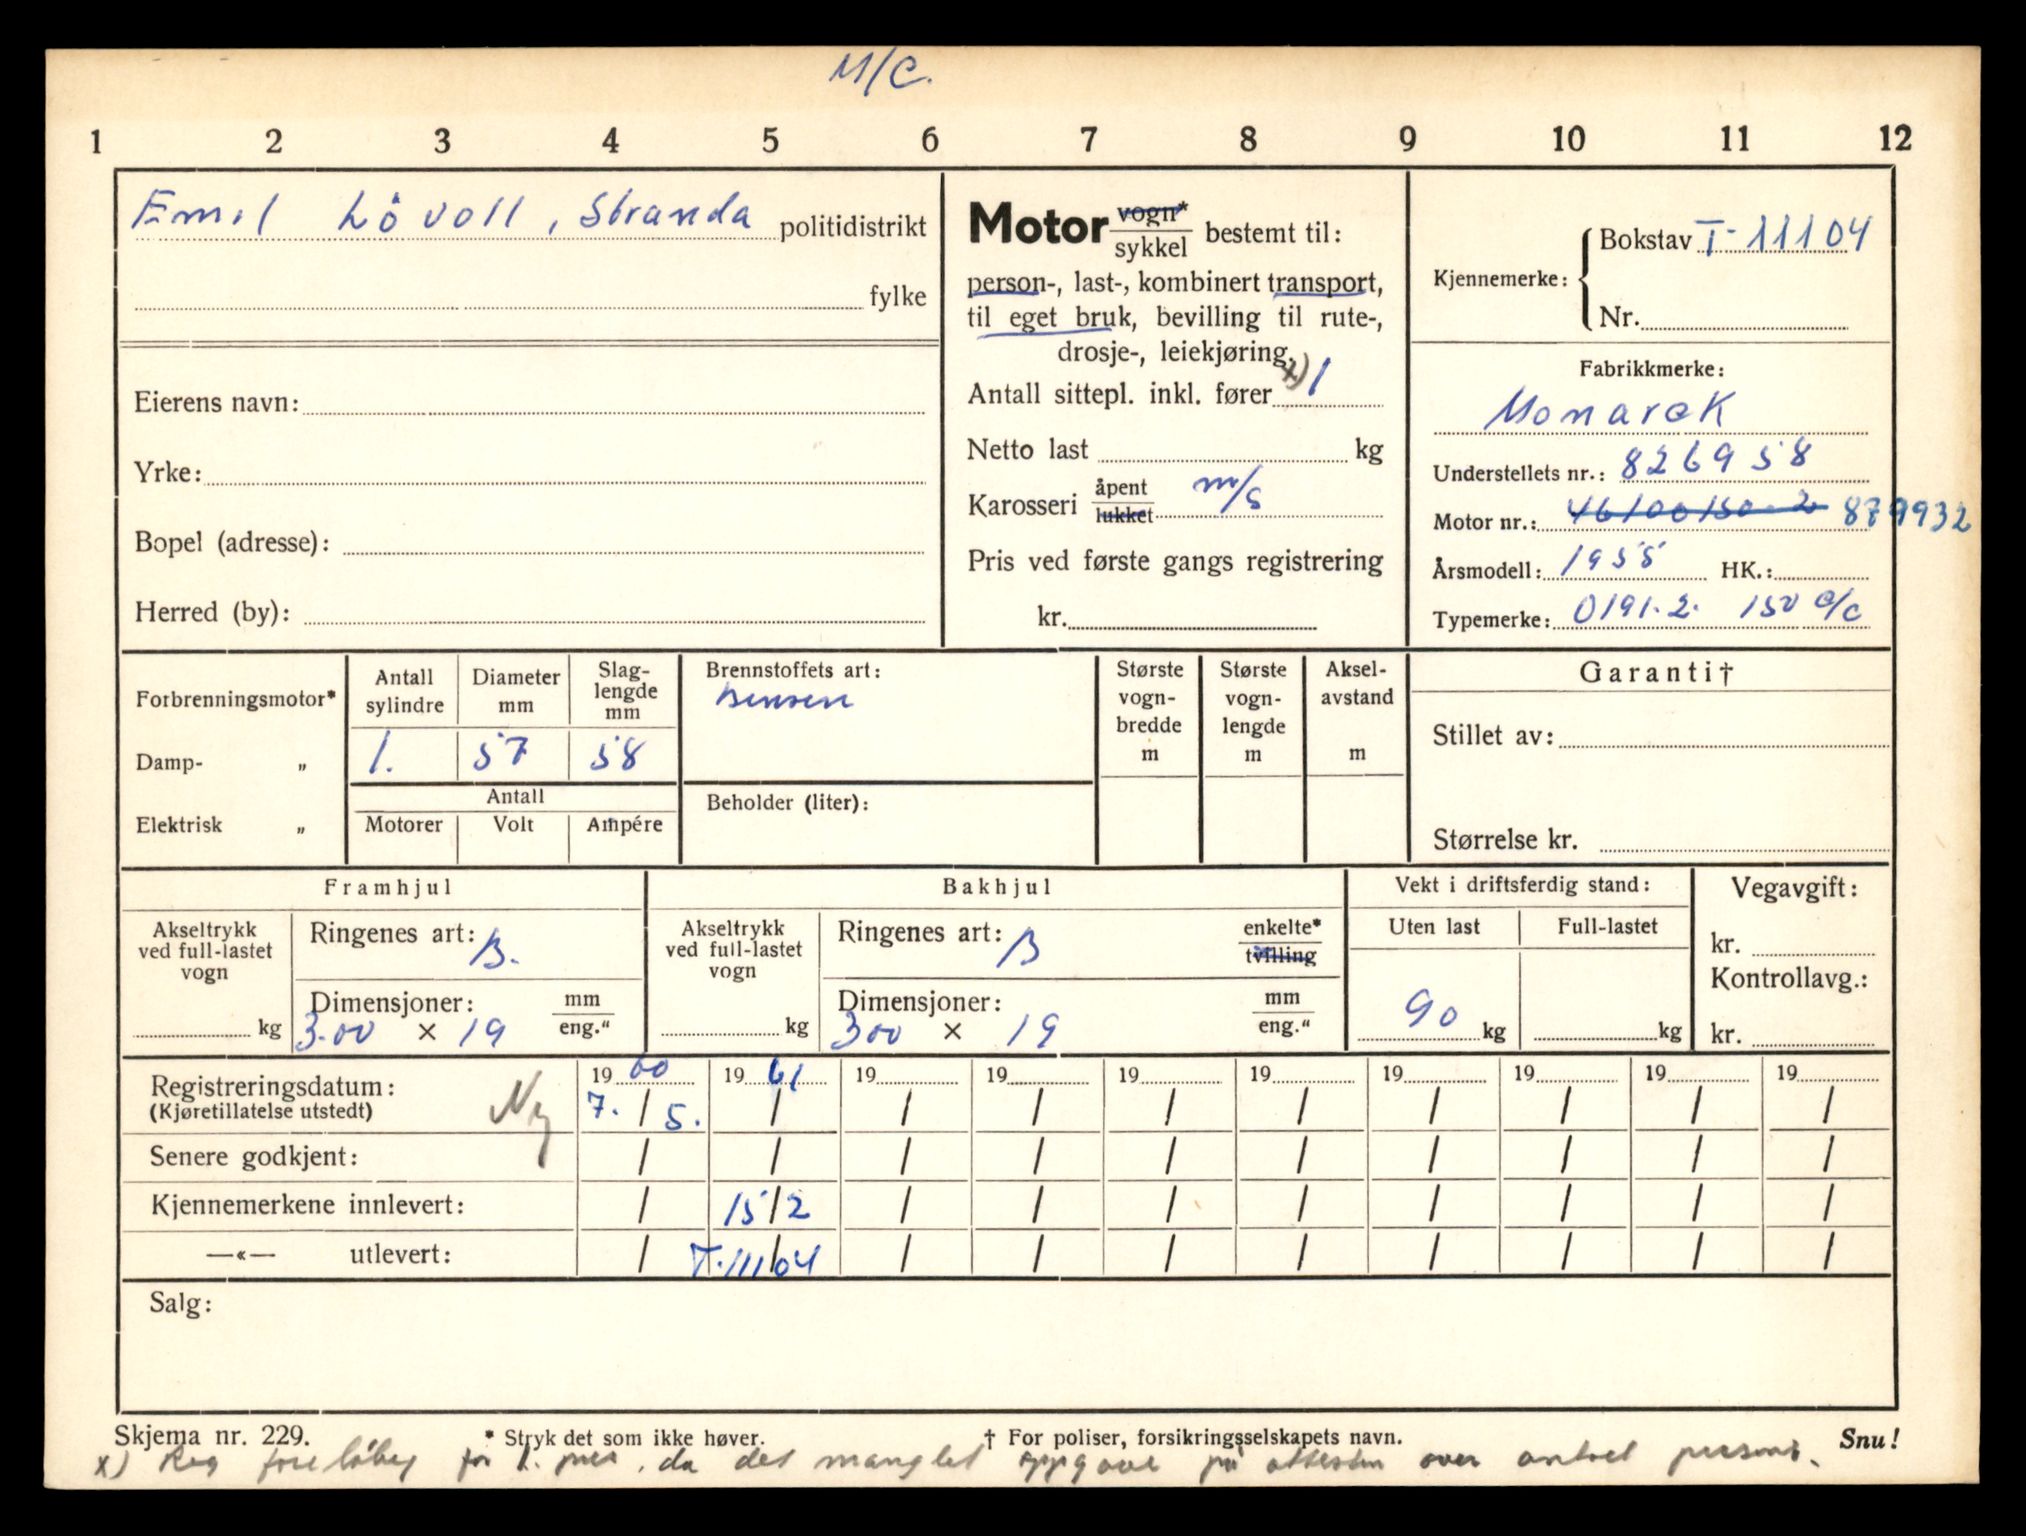 M/C.
1 2 3 4 5 6 7 8 9 10 11 12
Emil Lövoll, Stranda politidistrikt
fylke
Eierens navn:
Yrke:
Bopel (adresse):
Herred (by):
Motor vogn* / sykkel bestemt til:
person-, last-, kombinert transport,
til eget bruk, bevilling til rute-,
drosje-, leiekjøring.
Antall sittepl. inkl. fører x) 1
Netto last kg
Karosseri åpent / lukket m/s
Pris ved første gangs registrering
kr.
Kjennemerke: Bokstav T-11104
Nr.
Fabrikkmerke:
Monark
Understellets nr.: 826958
Motor nr.: 46100150-2 879932
Årsmodell: 1955 HK.:
Typemerke: 0191.2. 150 c/c
Forbrenningsmotor*
Damp- „
Elektrisk „
Antall sylindre
Diameter mm
Slag-lengde mm
1. 57 58
Antall
Motorer Volt Ampére
Brennstoffets art:
Bensin
Beholder (liter):
Største vogn-bredde m
Største vogn-lengde m
Aksel-avstand m
Garanti†
Stillet av:
Størrelse kr.
Framhjul
Akseltrykk ved full-lastet vogn
kg
Ringenes art: B.
Dimensjoner: mm / eng."
3.00 × 19
Bakhjul
Akseltrykk ved full-lastet vogn
kg
Ringenes art: B enkelte* / tvilling
Dimensjoner: mm / eng."
300 × 19
Vekt i driftsferdig stand:
Uten last Full-lastet
90 kg kg
Vegavgift:
kr.
Kontrollavg.:
kr.
Registreringsdatum: Ny 1960 1961 19 19 19 19 19 19 19 19
(Kjøretillatelse utstedt) 7. / 5. / / / / / / / / /
Senere godkjent: / / / / / / / / / /
Kjennemerkene innlevert: / 15/2 / / / / / / / /
—«— utlevert: / T.11104 / / / / / / / /
Salg:
Skjema nr. 229. * Stryk det som ikke høver. † For poliser, forsikringsselskapets navn. Snu!
x) Reg foreløbig for 1. pers. da det manglet oppgave på attesten over antal personer.